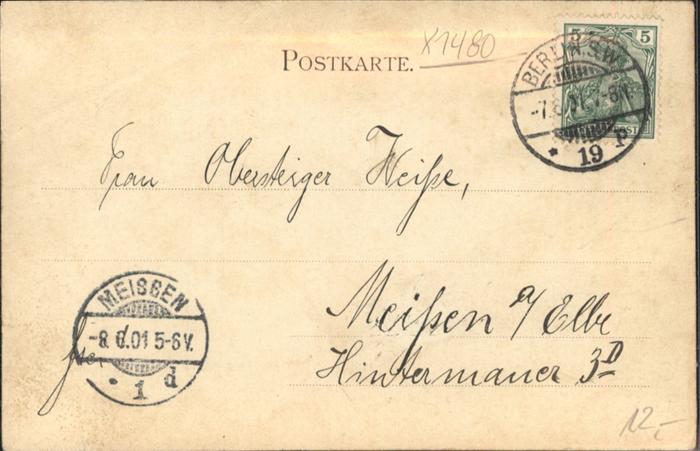 X1480
POSTKARTE.
5 5
BERLIN S.W.
19 p
Frau Obersteiger Weiße,
MEISSEN
-8.6.01 5-6V.
* 1 d
Meißen a/Elbe
Hintermauer 3D
12,-